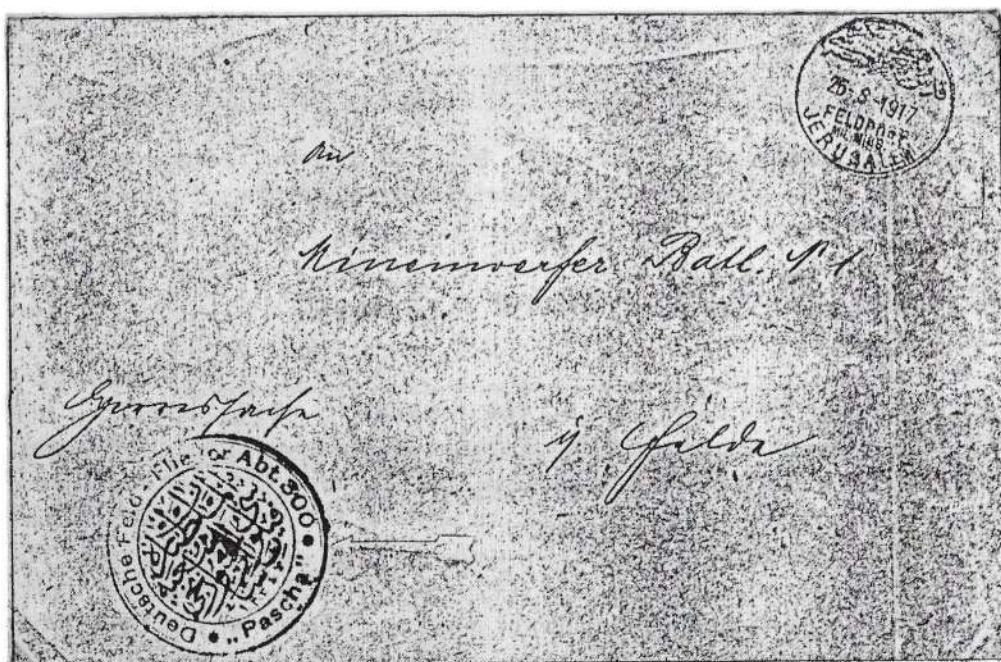 26-8-1917
FELDPOST
MIL. MISS.
JERUSALEM
An
Minenwerfer Batl. N° 1
Heeressache
i/ Felde
Deutsche Feld-Flieger Abt 300 • „Pascha" •